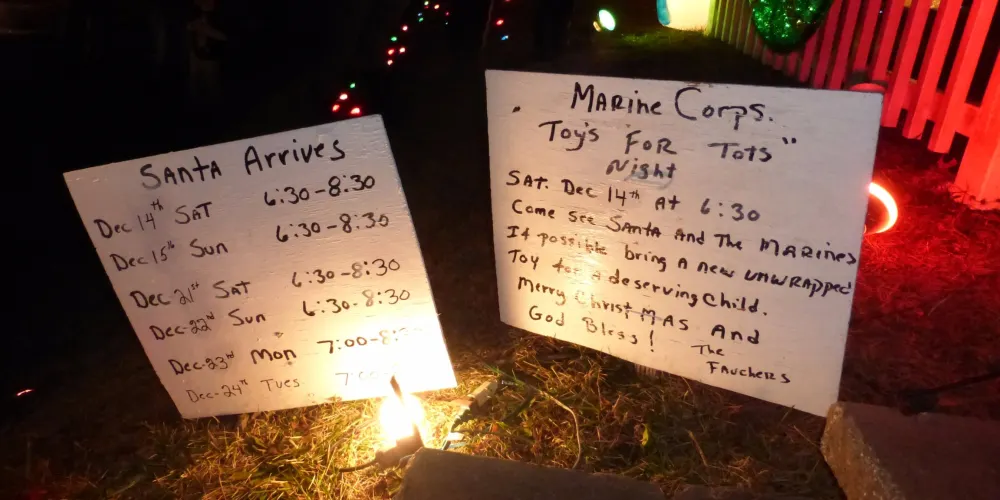 Santa Arrives
Dec 14th Sat 6:30-8:30
Dec 15th Sun 6:30-8:30
Dec-21st Sat 6:30-8:30
Dec-22nd Sun 6:30-8:30
Dec-23rd Mon 7:00-8:
Dec-24th Tues 7:
" Marine Corps.
Toy's For Tots "
Night
Sat. Dec 14th At 6:30
Come see Santa And The Marines
If possible bring A new unwrapped
Toy for A deserving Child.
Merry Christmas And
God Bless! The
Fauchers